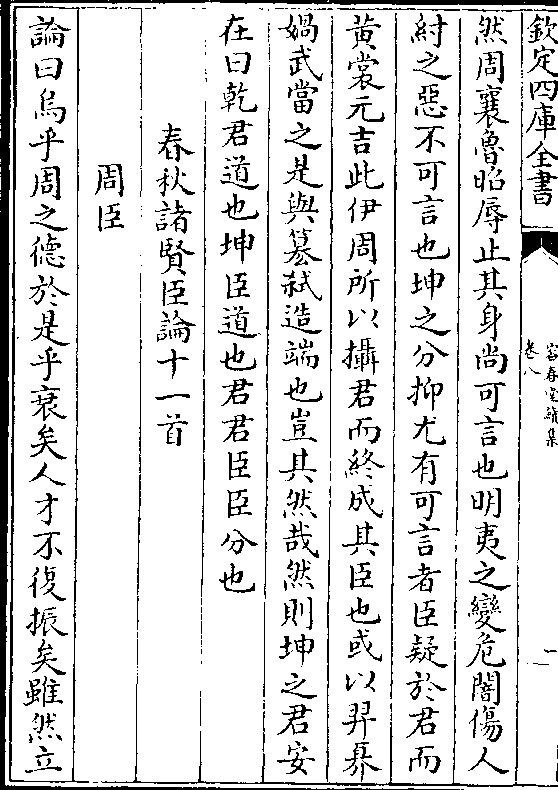 欽定四庫全書
容春堂續集
卷八
一
然周襄魯昭辱止其身尚可言也明夷之變危闇傷人
紂之惡不可言也坤之分抑尤有可言者臣疑於君而
黄裳元吉此伊周所以攝君而終成其臣也或以羿奡
媧武當之是與簒弑造端也豈其然哉然則坤之君安
在曰乾君道也坤臣道也君君臣臣分也
春秋諸賢臣論十一首
周臣
論曰烏乎周之徳於是乎衰矣人才不復振矣雖然立